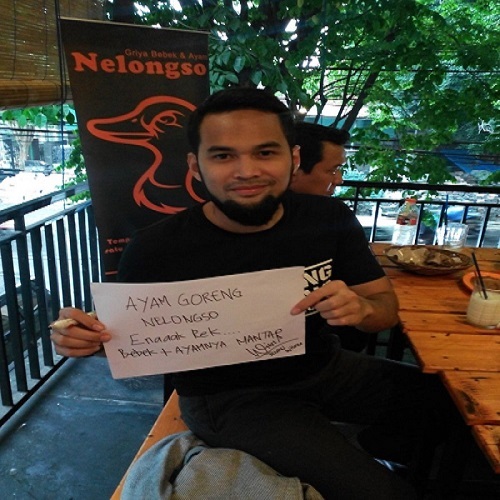 Griya Bebek & Ayam
Nelongso
AYAM GORENG
NELONGSO
Enaaak Rek....
Bebek + AYAMNYA MANTAP